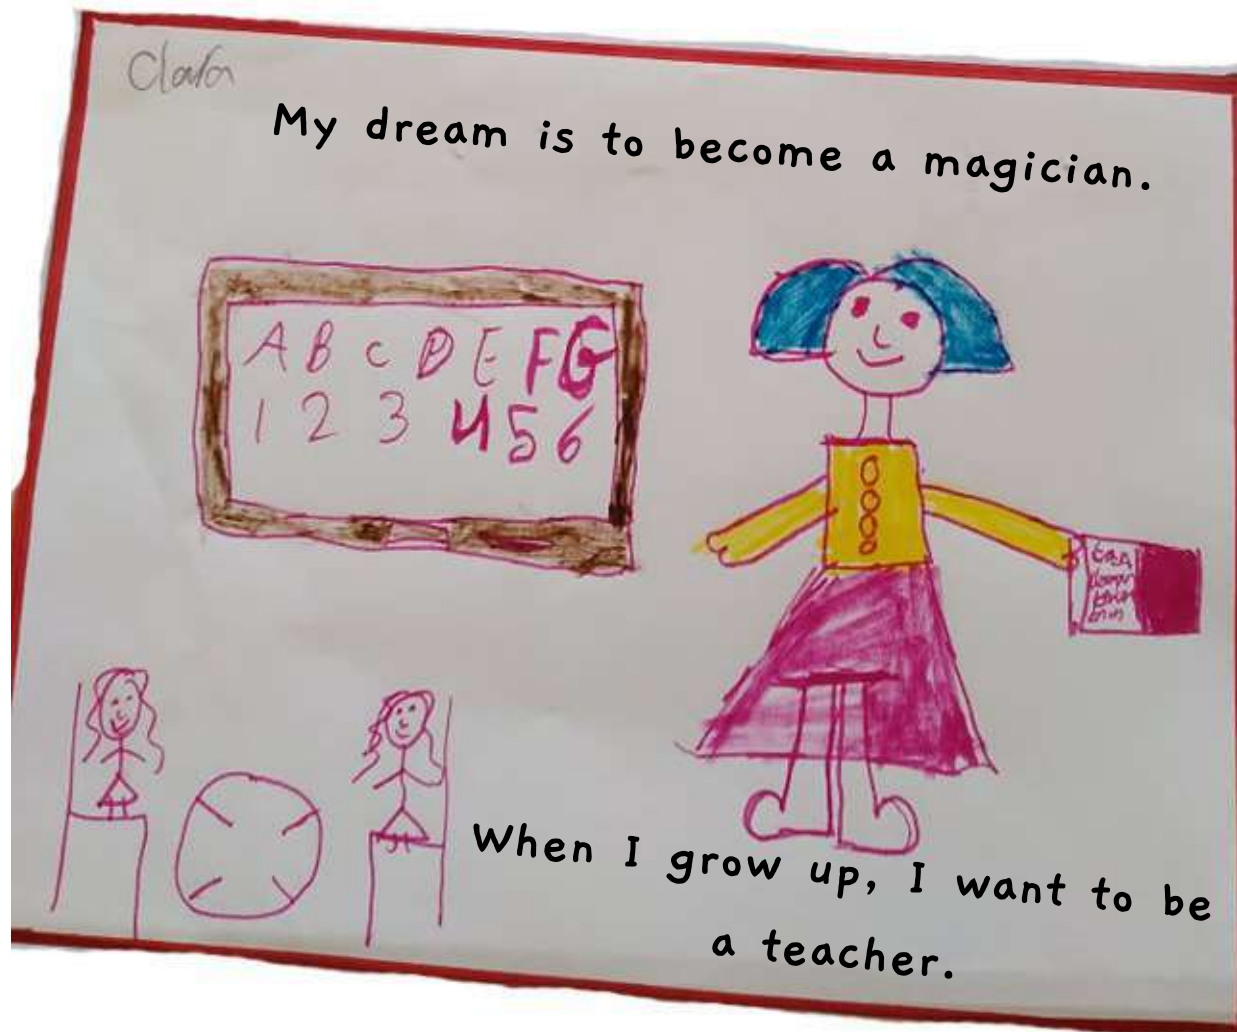 Clara
My dream is to become a magician.
A B C D E F G
1 2 3 4 5 6
When I grow up, I want to be
a teacher.